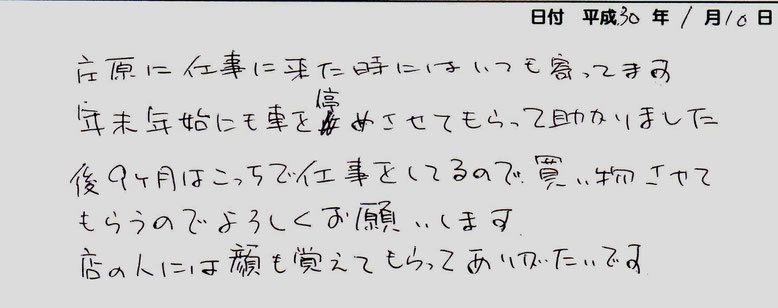 日付 平成30年1月10日
庄原に仕事に来た時にはいつも寄ってます
年末年始にも車を停めさせてもらって助かりました
後9ヶ月はこっちで仕事をしてるので買い物させて
もらうのでよろしくお願いします
店の人には顔も覚えてもらってありがたいです